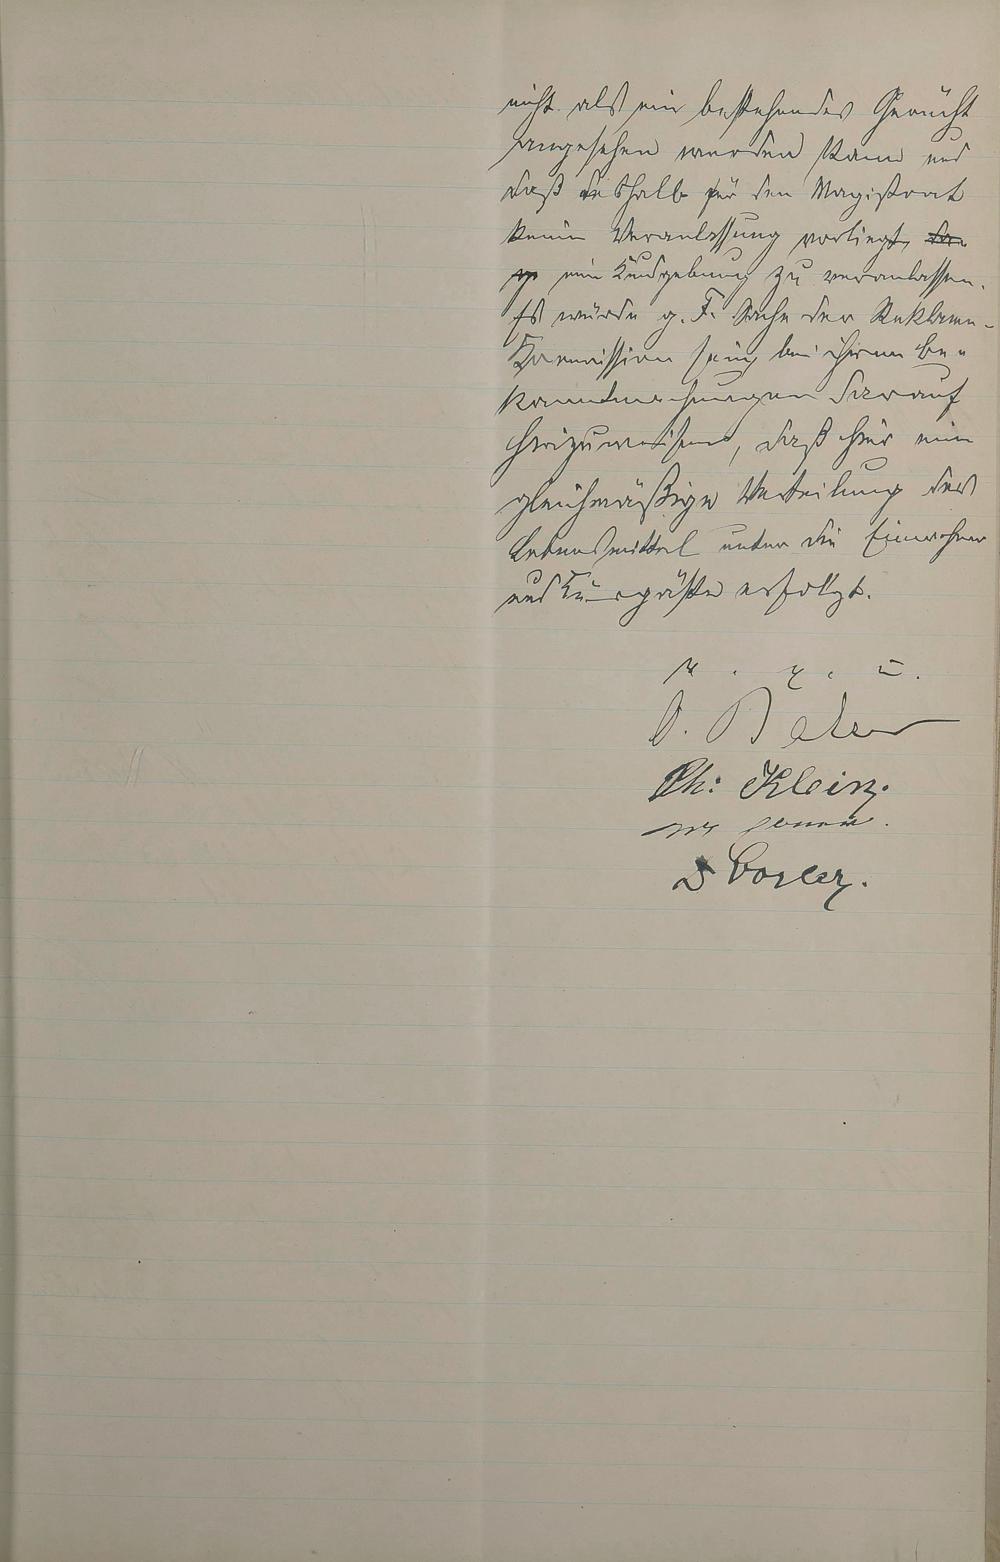 nicht als ein bestehendes Gerücht
angesehen werden kann und
daß deshalb für den Magistrat
keine Veranlassung vorliegt,
eine Kundgebung zu veranlassen.
Es würde g. F. Sache der Reklame-
Kommission sein bei ihren Be-
kanntmachungen darauf
hinzuweisen, daß hier eine
gleichmäßige Verteilung der
Lebensmittel unter die Einwohner
und Kurgäste erfolgt.
v. g. u.
Ph: Klein.